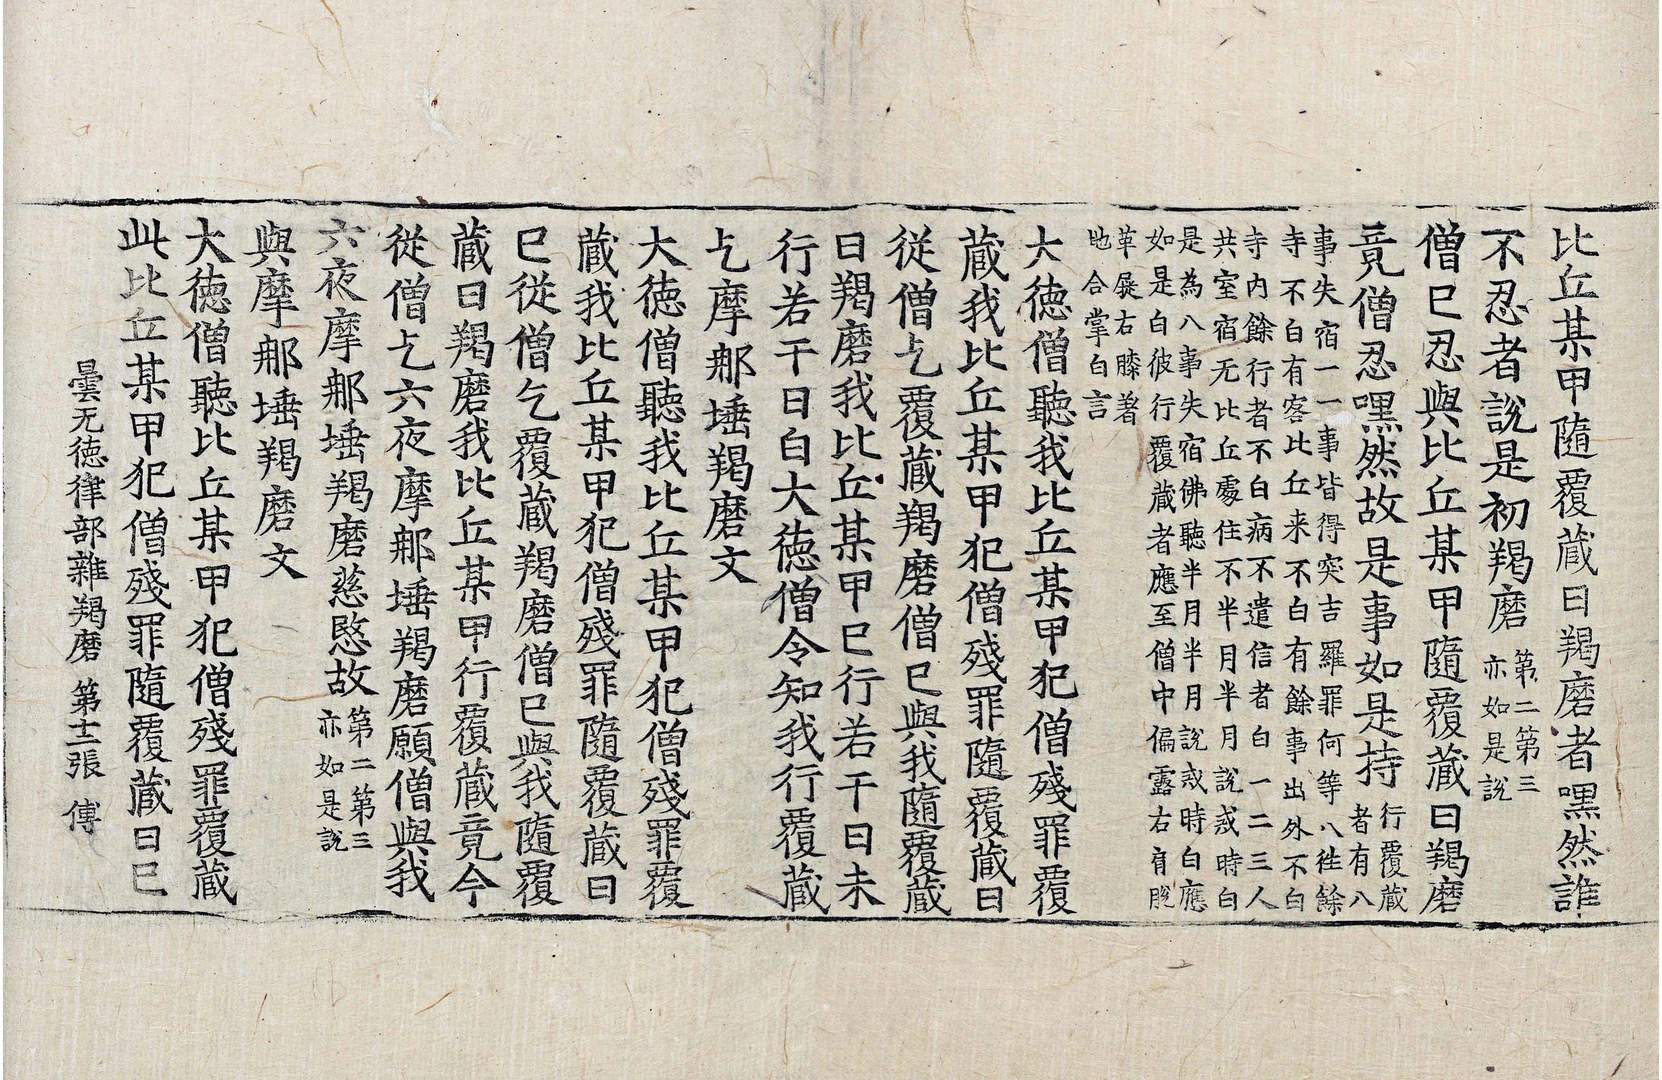 比丘某甲隨覆藏日羯磨者嘿然誰
不忍者說是初羯磨第二第三亦如是說
僧已忍與比丘某甲隨覆藏日羯磨
竟僧忍嘿然故是事如是持行覆藏者有八
事失宿一一事皆得突吉羅罪何等八徃餘
寺不白有客比丘来不白有餘事出外不白
寺内餘行者不白病不遣信者白一二三人
共室宿无比丘處住不半月半月說戒時白
是為八事失宿佛聽半月半月說戒時白應
如是白彼行覆藏者應至僧中偏露右肩脫
革屣右膝着
地合掌白言
大徳僧聽我比丘某甲犯僧殘罪覆
藏我比丘某甲犯僧殘罪隨覆藏日
從僧乞覆藏羯磨僧已與我隨覆藏
日羯磨我比丘某甲已行若干日未
行若干日白大徳僧令知我行覆藏
乞摩那埵羯磨文
大徳僧聽我比丘某甲犯僧殘罪覆
藏我比丘某甲犯僧殘罪隨覆藏日
已從僧乞覆藏羯磨僧已與我隨覆
藏日羯磨我比丘某甲行覆藏竟今
從僧乞六夜摩那埵羯磨願僧與我
六夜摩那埵羯磨慈愍故第二第三亦如是說
與摩那埵羯磨文
大徳僧聽比丘某甲犯僧殘罪覆藏
此比丘某甲犯僧殘罪隨覆藏日已
曇无徳律部雜羯磨 第十二張 傅